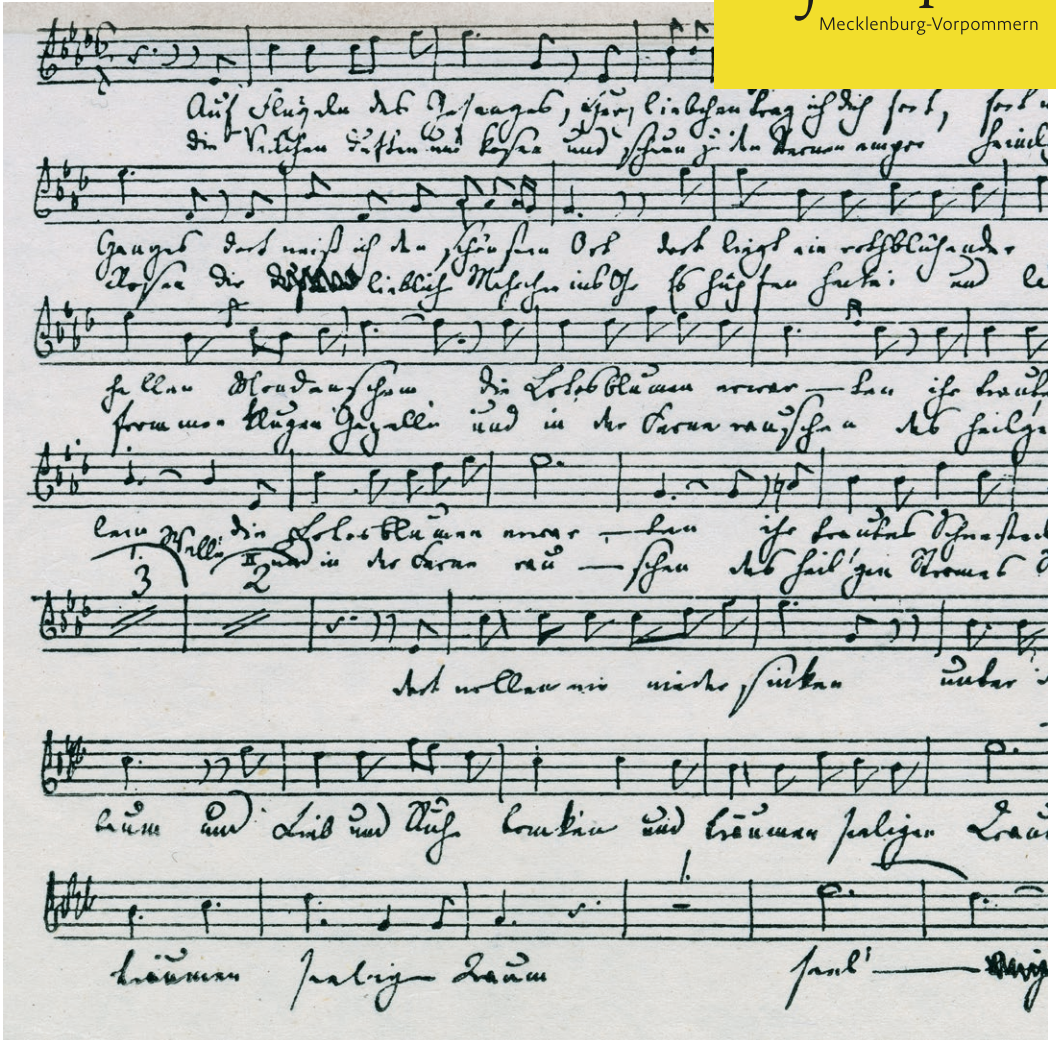 Mecklenburg-Vorpommern
Auf Flügeln des Gesanges, Herzliebchen trag ich dich fort, fort
die Veilchen duften und kosen und schaun zu den Sternen empor heiml
Ganges dort weiß ich den schönsten Ort dort liegt ein rothblühender
Rosen die lieblich Mährchen ins Ohr Es hüpfen herbei und
hellen Mondenschein die Lotosblumen erwar – ten ihr traut
frommen klugen Gazelln und in der Ferne rauschen des heilg
lein die Lotosblumen erwar – ten ihr trautes Schwesterl
Welln und in der Ferne rau – schen des heil'gen Stromes
3 2
dort wollen wir niedersinken unter
baum und Lieb und Ruhe trinken und träumen seeligen Trau
träumen seeligen Traum seel'